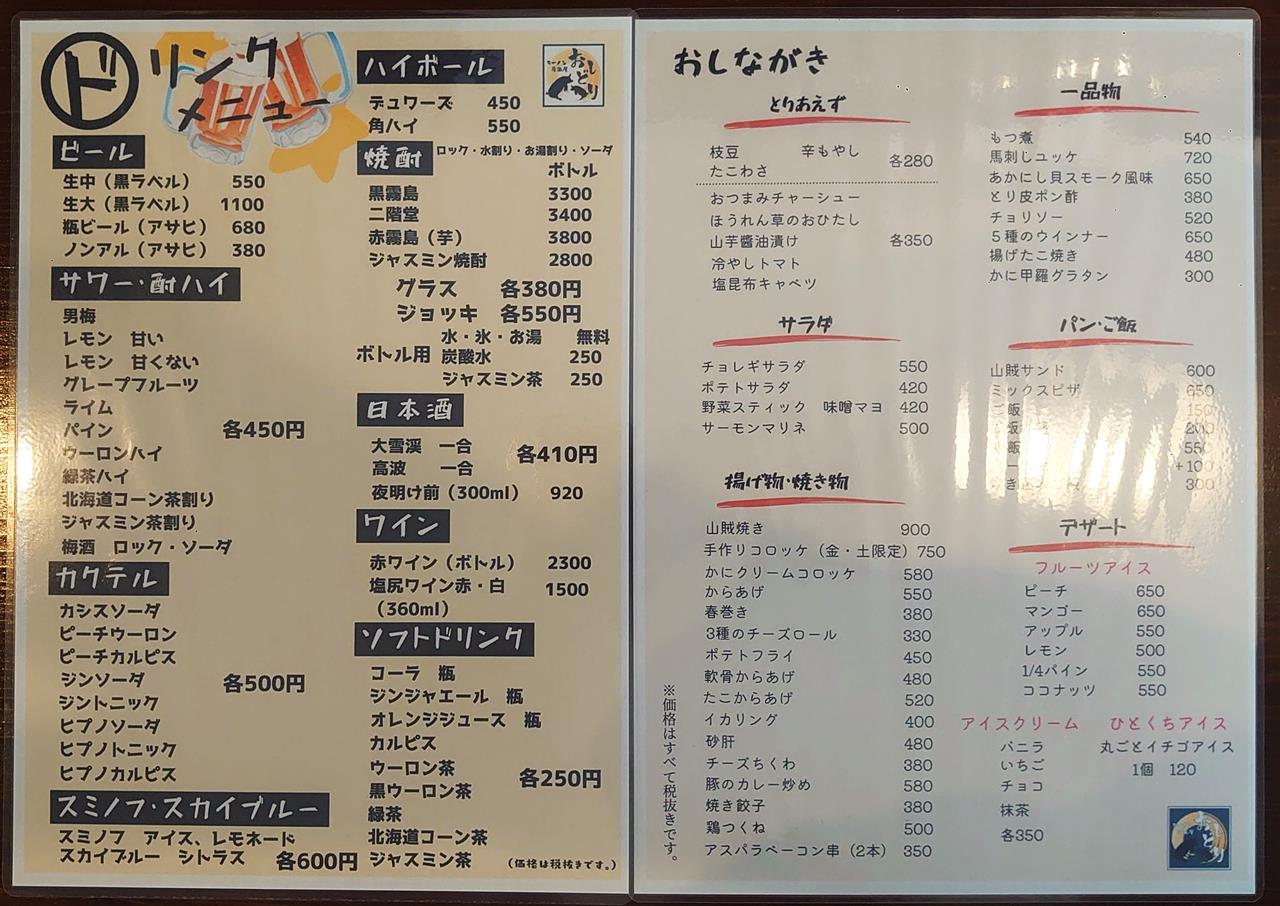 ドリンク
メニュー
ビール
生中（黒ラベル） 550
生大（黒ラベル） 1100
瓶ビール（アサヒ） 680
ノンアル（アサヒ） 380
サワー・酎ハイ
男梅
レモン 甘い
レモン 甘くない
グレープフルーツ
ライム
パイン 各450円
ウーロンハイ
緑茶ハイ
北海道コーン茶割り
ジャスミン茶割り
梅酒 ロック・ソーダ
カクテル
カシスソーダ
ピーチウーロン
ピーチカルピス
ジンソーダ 各500円
ジントニック
ヒプノソーダ
ヒプノトニック
ヒプノカルピス
スミノフ・スカイブルー
スミノフ アイス、レモネード
スカイブルー シトラス 各600円
ハイボール
デュワーズ 450
角ハイ 550
焼酎 ロック・水割り・お湯割り・ソーダ
ボトル
黒霧島 3300
二階堂 3400
赤霧島（芋） 3800
ジャスミン焼酎 2800
グラス 各380円
ジョッキ 各550円
水・氷・お湯 無料
ボトル用 炭酸水 250
ジャスミン茶 250
日本酒
大雪渓 一合 各410円
高波 一合
夜明け前（300ml） 920
ワイン
赤ワイン（ボトル） 2300
塩尻ワイン赤・白 1500
（360ml）
ソフトドリンク
コーラ 瓶
ジンジャエール 瓶
オレンジジュース 瓶
カルピス
ウーロン茶 各250円
黒ウーロン茶
緑茶
北海道コーン茶
ジャスミン茶
（価格は税抜きです。）
おしながき
とりあえず
枝豆 辛もやし 各280
たこわさ
おつまみチャーシュー
ほうれん草のおひたし
山芋醤油漬け 各350
冷やしトマト
塩昆布キャベツ
サラダ
チョレギサラダ 550
ポテトサラダ 420
野菜スティック 味噌マヨ 420
サーモンマリネ 500
揚げ物・焼き物
山賊焼き 900
手作りコロッケ（金・土限定） 750
かにクリームコロッケ 580
からあげ 550
春巻き 380
3種のチーズロール 330
ポテトフライ 450
軟骨からあげ 480
たこからあげ 520
イカリング 400
砂肝 480
チーズちくわ 380
豚のカレー炒め 580
焼き餃子 380
鶏つくね 500
アスパラベーコン串（2本） 350
※価格はすべて税抜きです。
一品物
もつ煮 540
馬刺しユッケ 720
あかにし貝スモーク風味 650
とり皮ポン酢 380
チョリソー 520
５種のウインナー 650
揚げたこ焼き 480
かに甲羅グラタン 300
パン・ご飯
山賊サンド 600
ミックスピザ 650
ご飯 150
200
飯 550
+100
300
デザート
フルーツアイス
ピーチ 650
マンゴー 650
アップル 550
レモン 500
1/4パイン 550
ココナッツ 550
アイスクリーム
バニラ
いちご
チョコ
抹茶
各350
ひとくちアイス
丸ごとイチゴアイス
1個 120